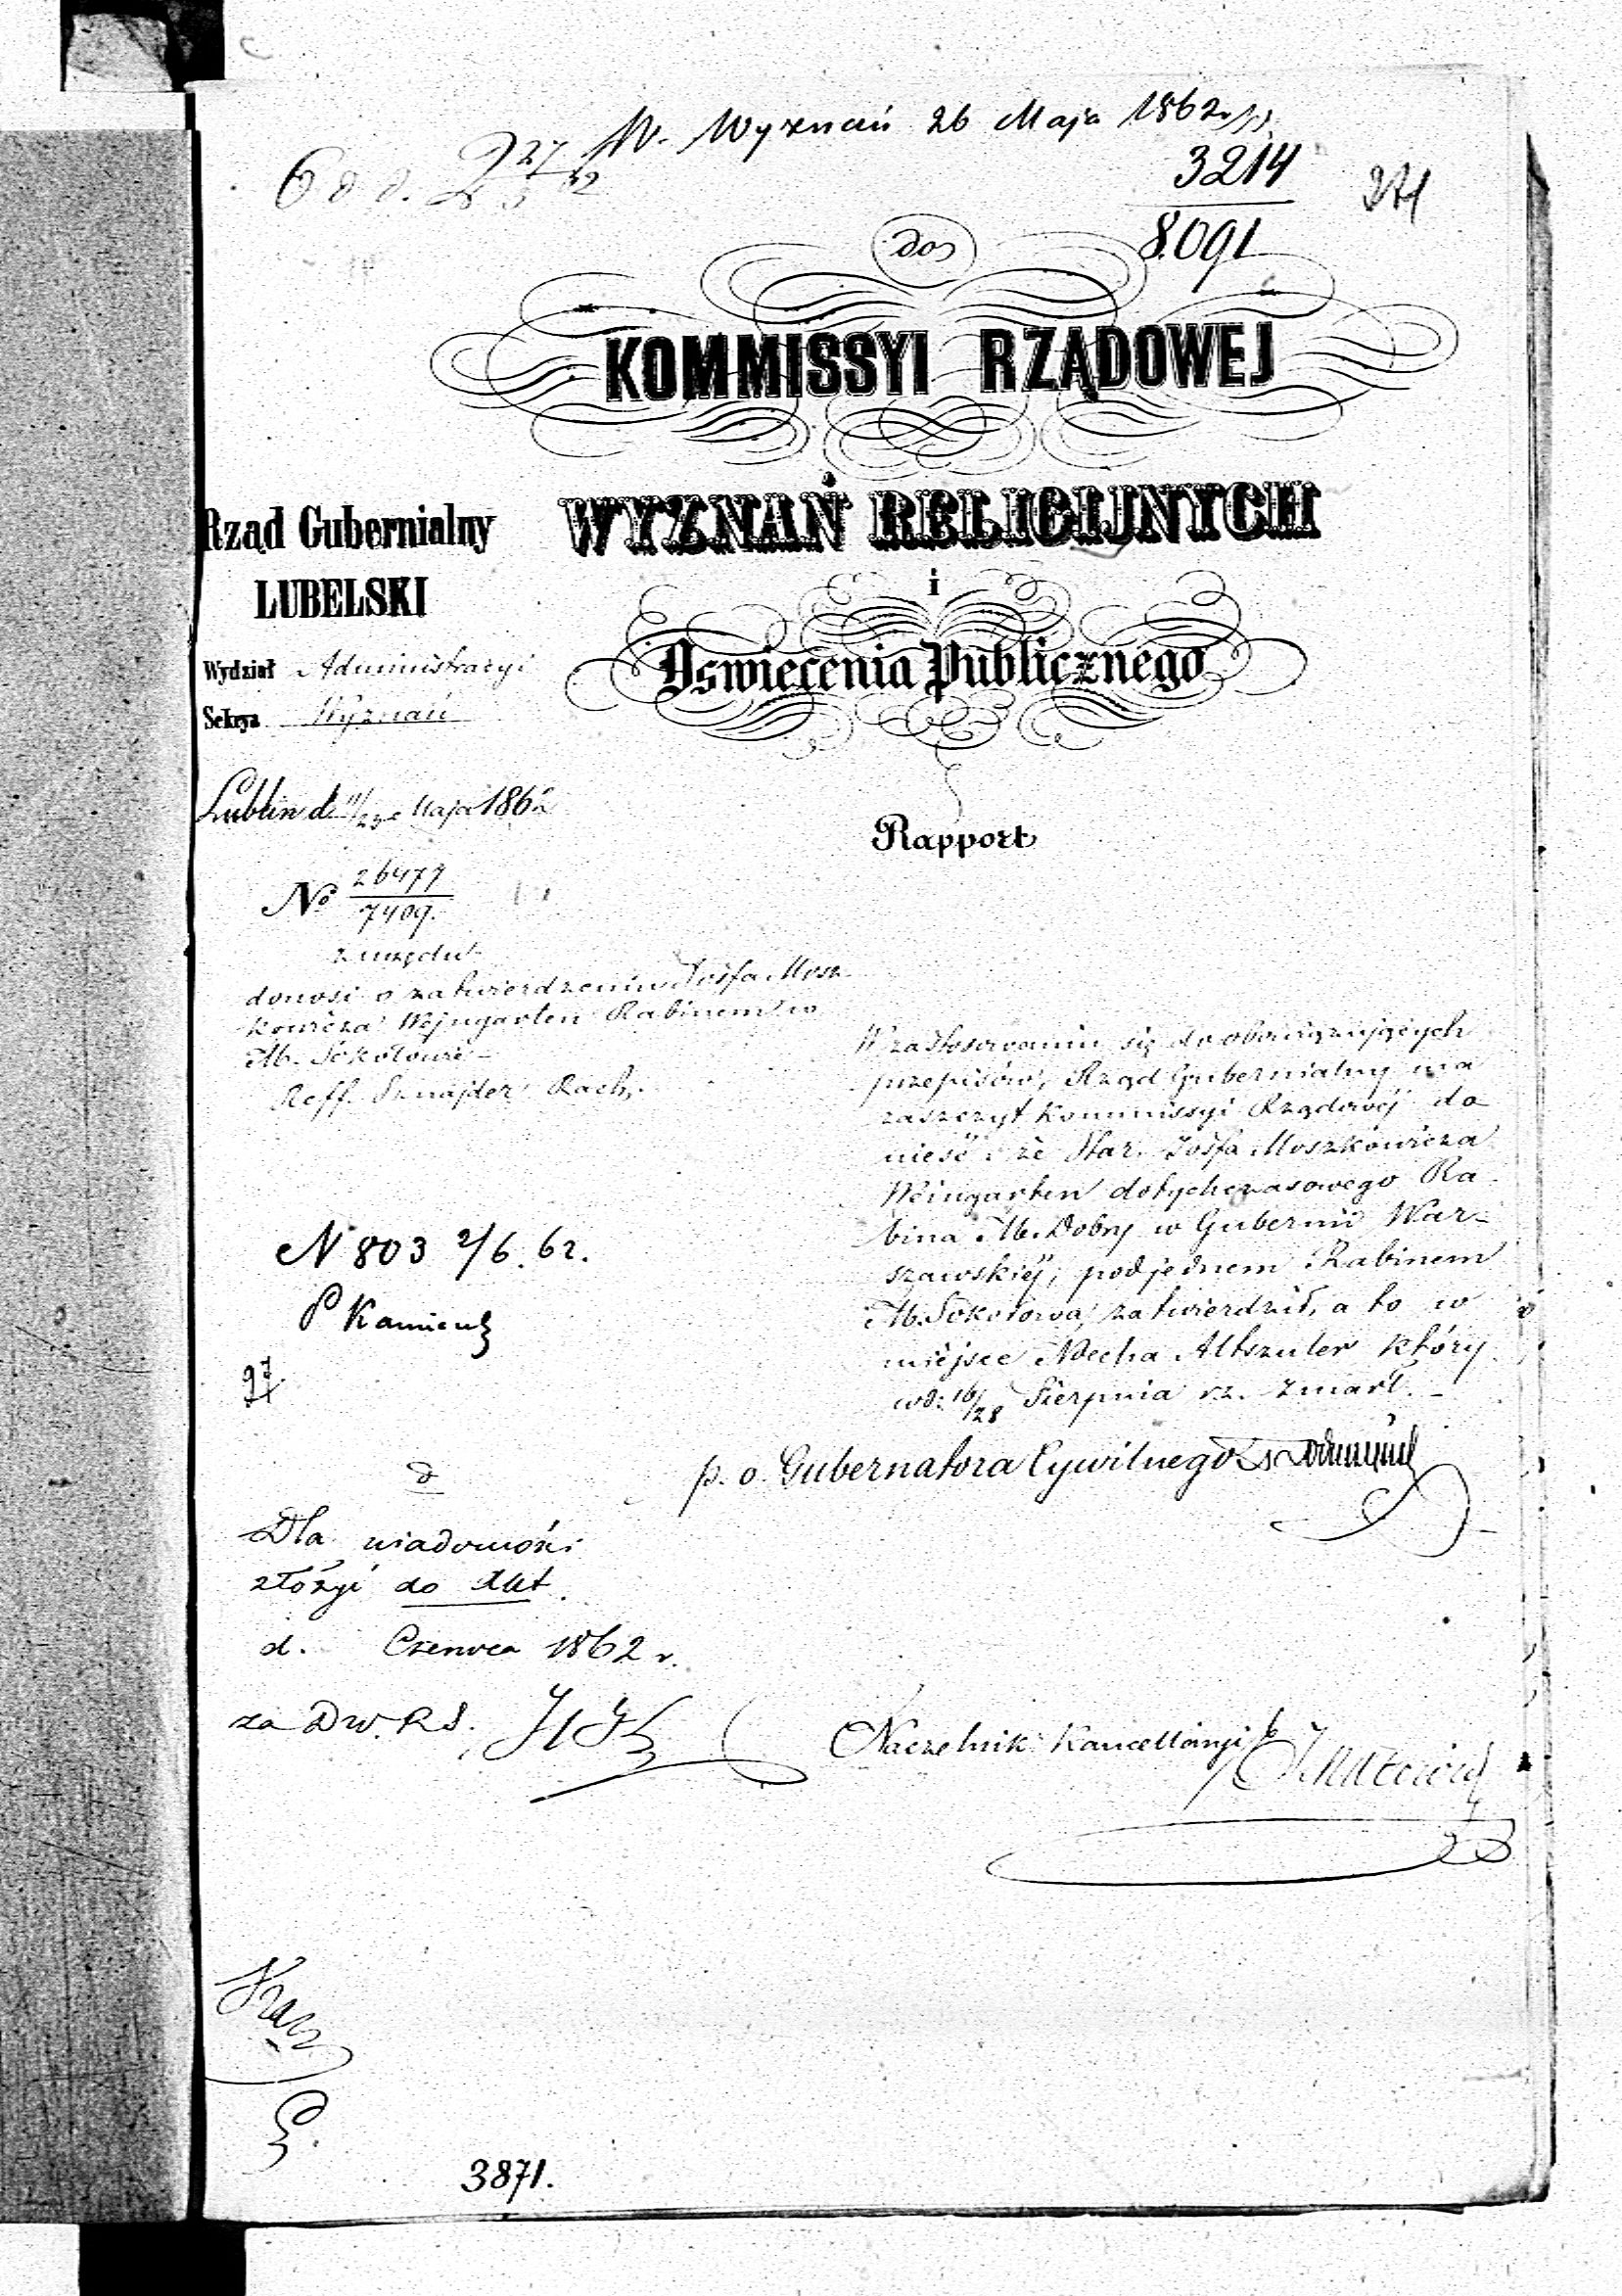 W. Wyznań 26 Maja 1862 r.
3214
8091
271
do
KOMMISSYI RZĄDOWEJ
WYZNAŃ RELIGIJNYCH
i
Oswiecenia Publicznego
Rząd Gubernialny
LUBELSKI
Wydział Administracyi
Sekcya Wyznań
Lublin d. 11/23 Maja 1862
Rapport
No 26477
7409.
z urzędu
donosi o zatwierdzeniu Josfa Mosz
kowicza Wejngarten Rabinem w
M. Sokołowie
Reff. Sznajder Rach.
W zastosowaniu się do obowiązujących
przepisów, Rząd Gubernialny ma
zaszczyt Kommissyi Rządowéj do
nieść: że Star. Josfa Moszkowicza
Weingarten dotychczasowego Ra
bina M. Dobry w Gubernii War-
szawskiéj, pod jednem Rabinem
M. Sokołowa zatwierdził, a to w
miejsce Mecha Altszuler który
w d: 16/28 Sierpnia r.z. zmarł.
N 803 2/6 62.
P Kamieńs
p. o. Gubernatora Cywilnego
Dla wiadomości
złożyć do Akt.
d. Czerwca 1862 r.
za D. W. R. S.
Naczelnik Kancellaryi
3871.